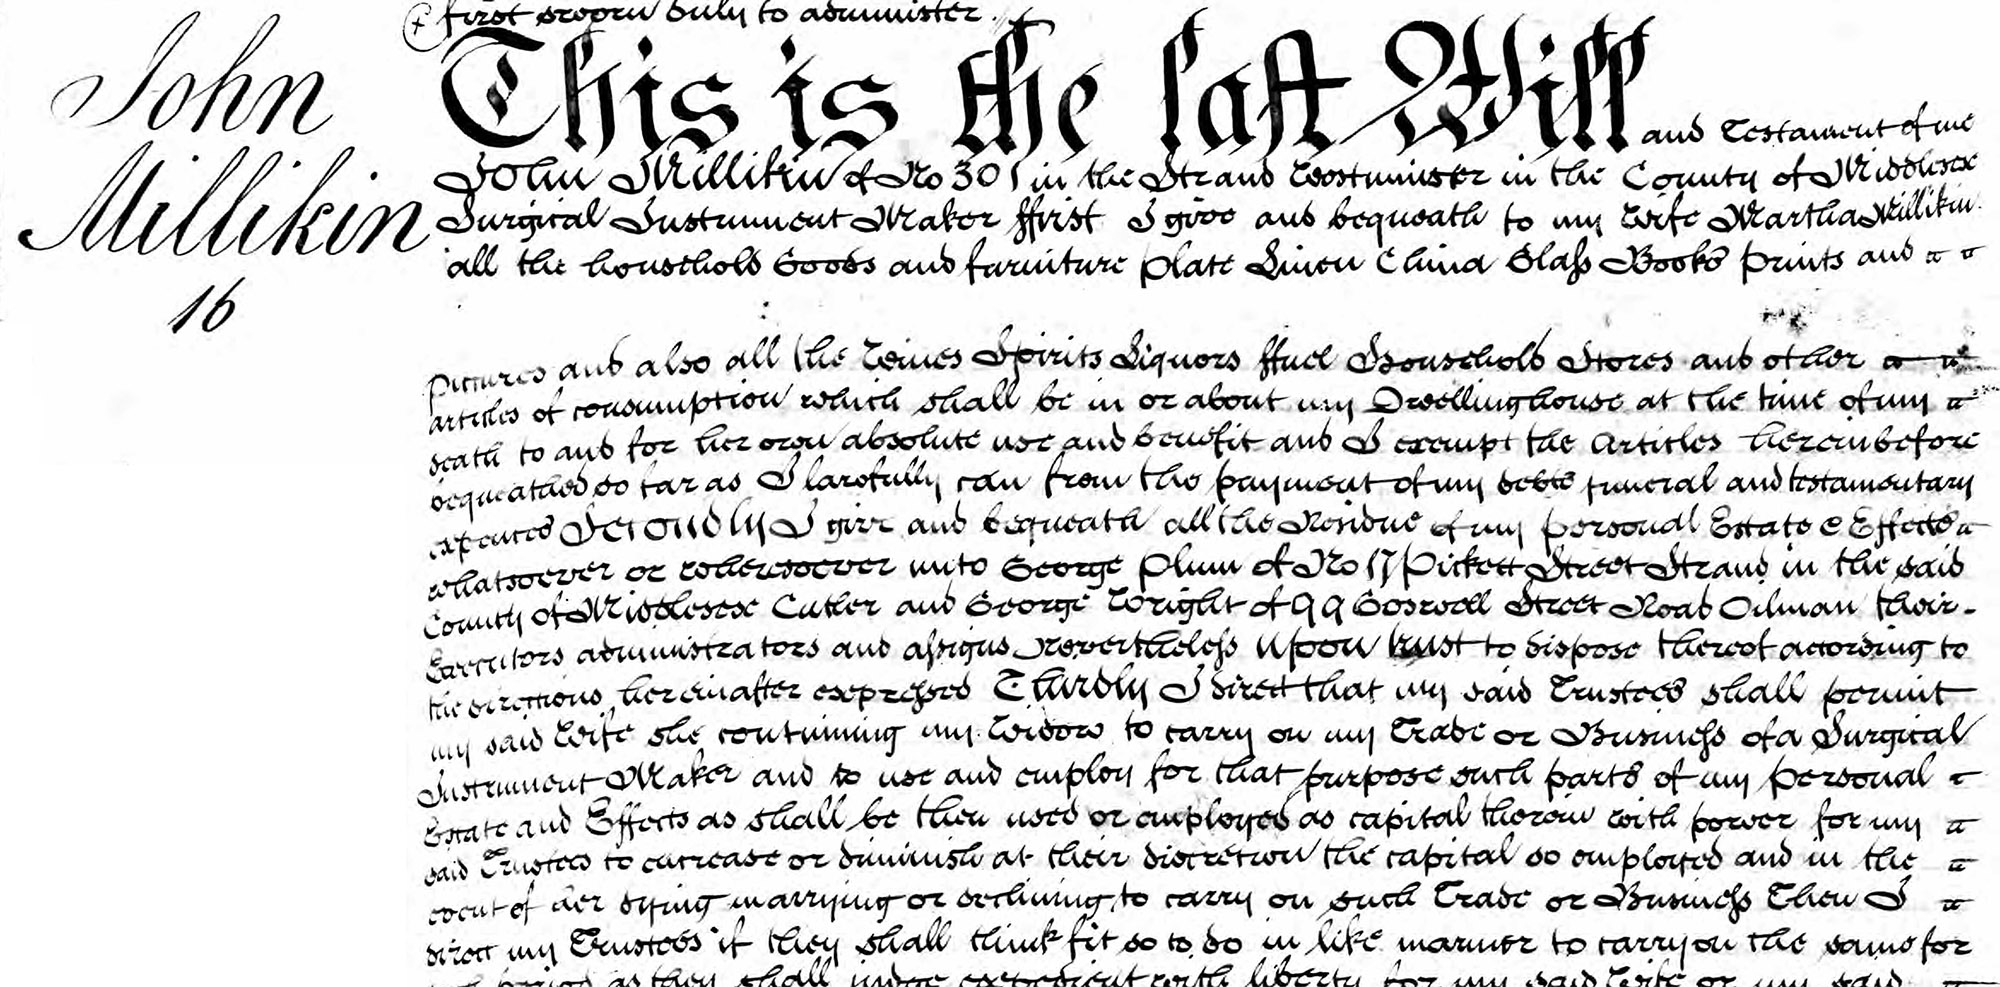 first sworn duly to administer.
John
Millikin
16
This is the last Will and Testament of me
John Millikin of No 301 in the Strand Westminster in the County of Middlesex
Surgical Instrument Maker ffirst I give and bequeath to my Wife Martha Millikin
all the household Goods and furniture plate Linen China Glass Books prints and
pictures and also all the Wines Spirits Liquors ffuel Household Stores and other
articles of consumption which shall be in or about my Dwellinghouse at the time of my
death to and for her own absolute use and benefit and I exempt the Articles hereinbefore
bequeathed so far as I lawfully can from the payment of my debts funeral and testamentary
expences Secondly I give and bequeath all the Residue of my personal Estate & Effects
whatsoever or wheresoever unto George Plum of No 17 Pickett Street Strand in the said
County of Middlesex Cutler and George Wright of 99 Goswell Street Road Oilman their
Executors administrators and assigns Nevertheless Upon trust to dispose thereof according to
the directions hereinafter expressed Thirdly I direct that my said Trustees shall permit
my said Wife she continuing my Widow to carry on my Trade or Business of a Surgical
Instrument Maker and to use and employ for that purpose such parts of my personal
Estate and Effects as shall be then used or employed as capital therein with power for my
said Trustees to encrease or diminish at their discretion the capital so employed and in the
event of her dying marrying or declining to carry on such Trade or Business Then I
direct my Trustees if they shall think fit so to do in like manner to carry on the same for
period as they shall judge expedient with liberty for my said Wife or my said